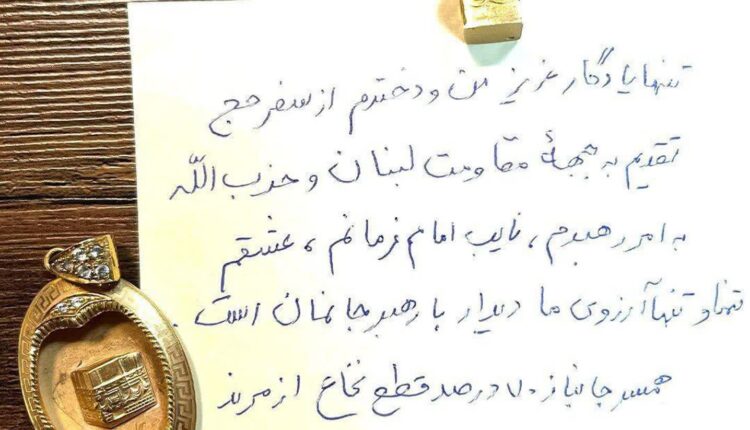 تنها یادگار عزیز من و دخترم از سفر حج
تقدیم به جبههٔ مقاومت لبنان و حزب الله
به امر رهبرم ، نایب امام زمانم ، عشقم
تنها و تنها آرزوی ما دیدار با رهبر جانمان است .
همسر جانباز ۷۰ درصد قطع نخاع از مرند